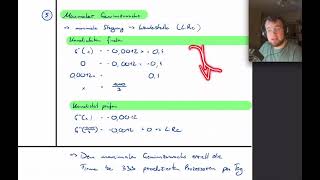 5 Maximaler Gewinnzuwachs
→ maximale Steigung → Wendestelle (LRW)
Kandidaten finden
G''(x) = -0,0012x + 0,1
0 = -0,0012x + 0,1
0,0012x = 0,1
x =
Kandidat prüfen
G'''(x) = -0,0012
= -0,0012 < 0 →
→ Den maximalen Gewinnzuwachs erzielt die
Firma bei produzierten Prozessoren pro Tag.